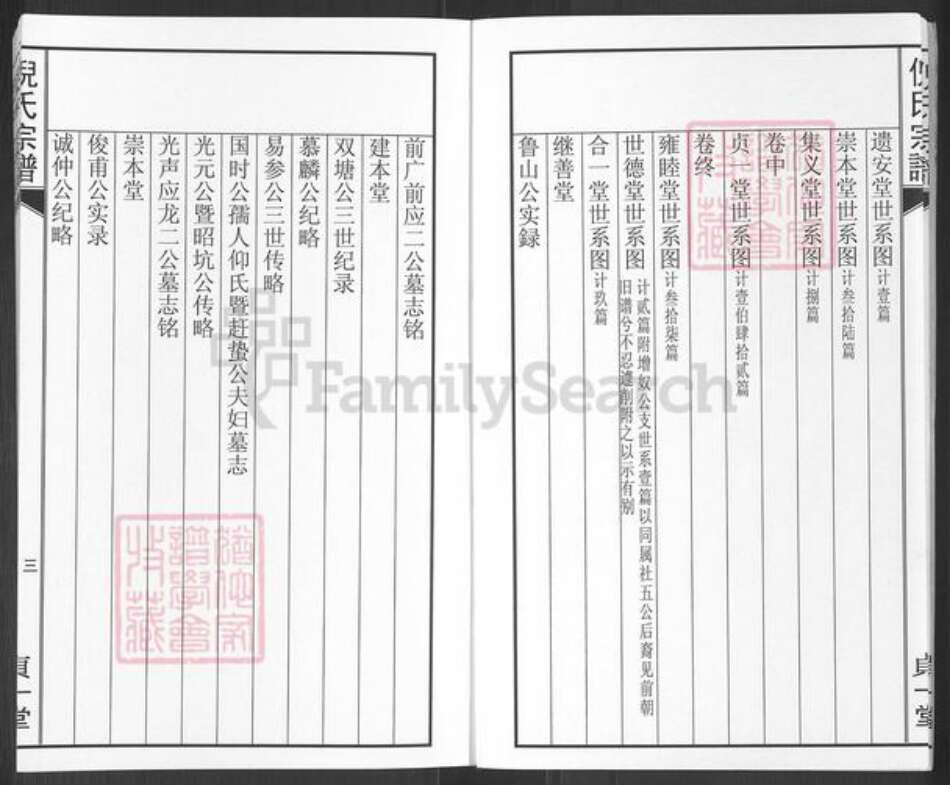 倪氏宗谱
遗安堂世系图 计壹篇
崇本堂世系图 计叁拾陆篇
集义堂世系图 计捌篇
卷中
贞一堂世系图 计壹伯肆拾贰篇
卷终
雍睦堂世系图 计叁拾柒篇
世德堂世系图 计贰篇附增奴公支世系壹篇以同属社五公后裔见前朝
旧谱兮不忍遽削附之以示有别
合一堂世系图 计玖篇
继善堂
鲁山公实録
貞一堂
前广前应二公墓志铭
建本堂
双塘公三世纪录
慕麟公纪略
易参公三世传略
国时公孺人仰氏暨赶蛰公夫妇墓志
光元公暨昭坑公传略
光声应龙二公墓志铭
崇本堂
俊甫公实录
诚仲公纪略
倪氏宗谱
三
貞一堂
FamilySearch